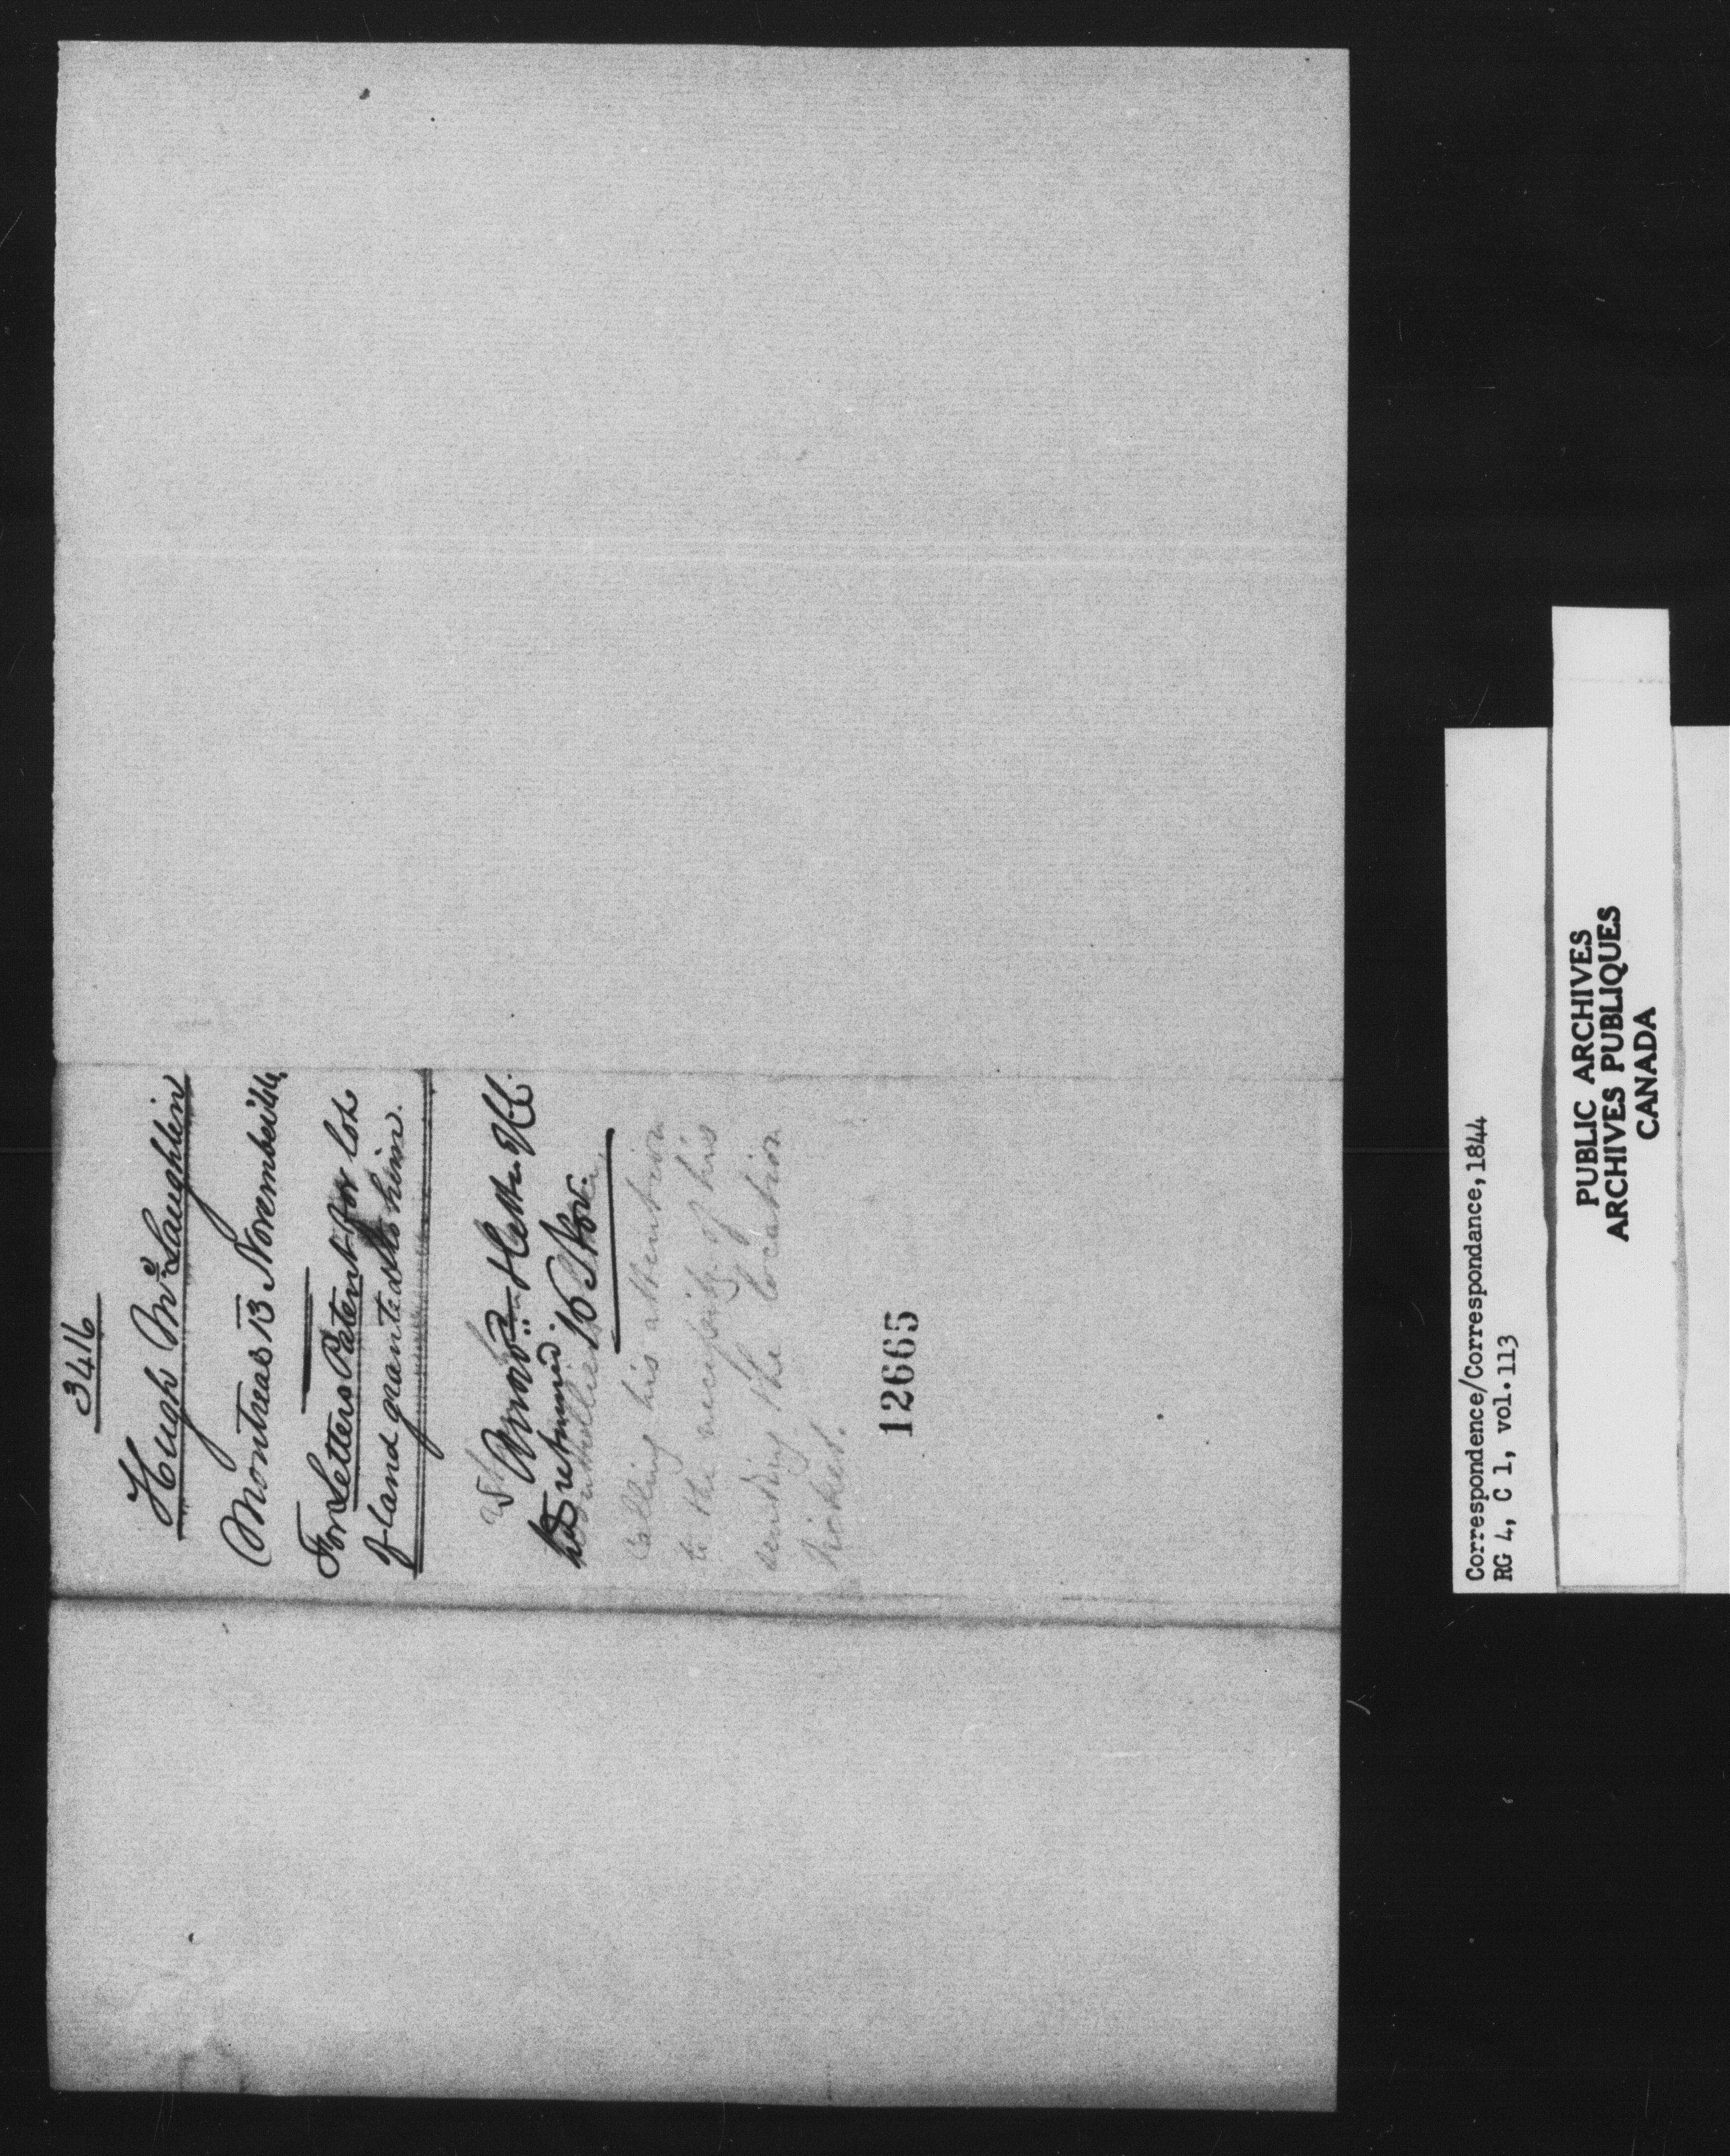 3416
Hugh McLaughlin
Montreal 13 November '44.
For Letters Patent for lot
of land granted to him.
returned.
16 Nov.
Calling his attention
to the necessity of his
sending the location
ticket.
12665
Correspondence/Correspondance, 1844
RG 4, C 1, vol. 113
PUBLIC ARCHIVES
ARCHIVES PUBLIQUES
CANADA